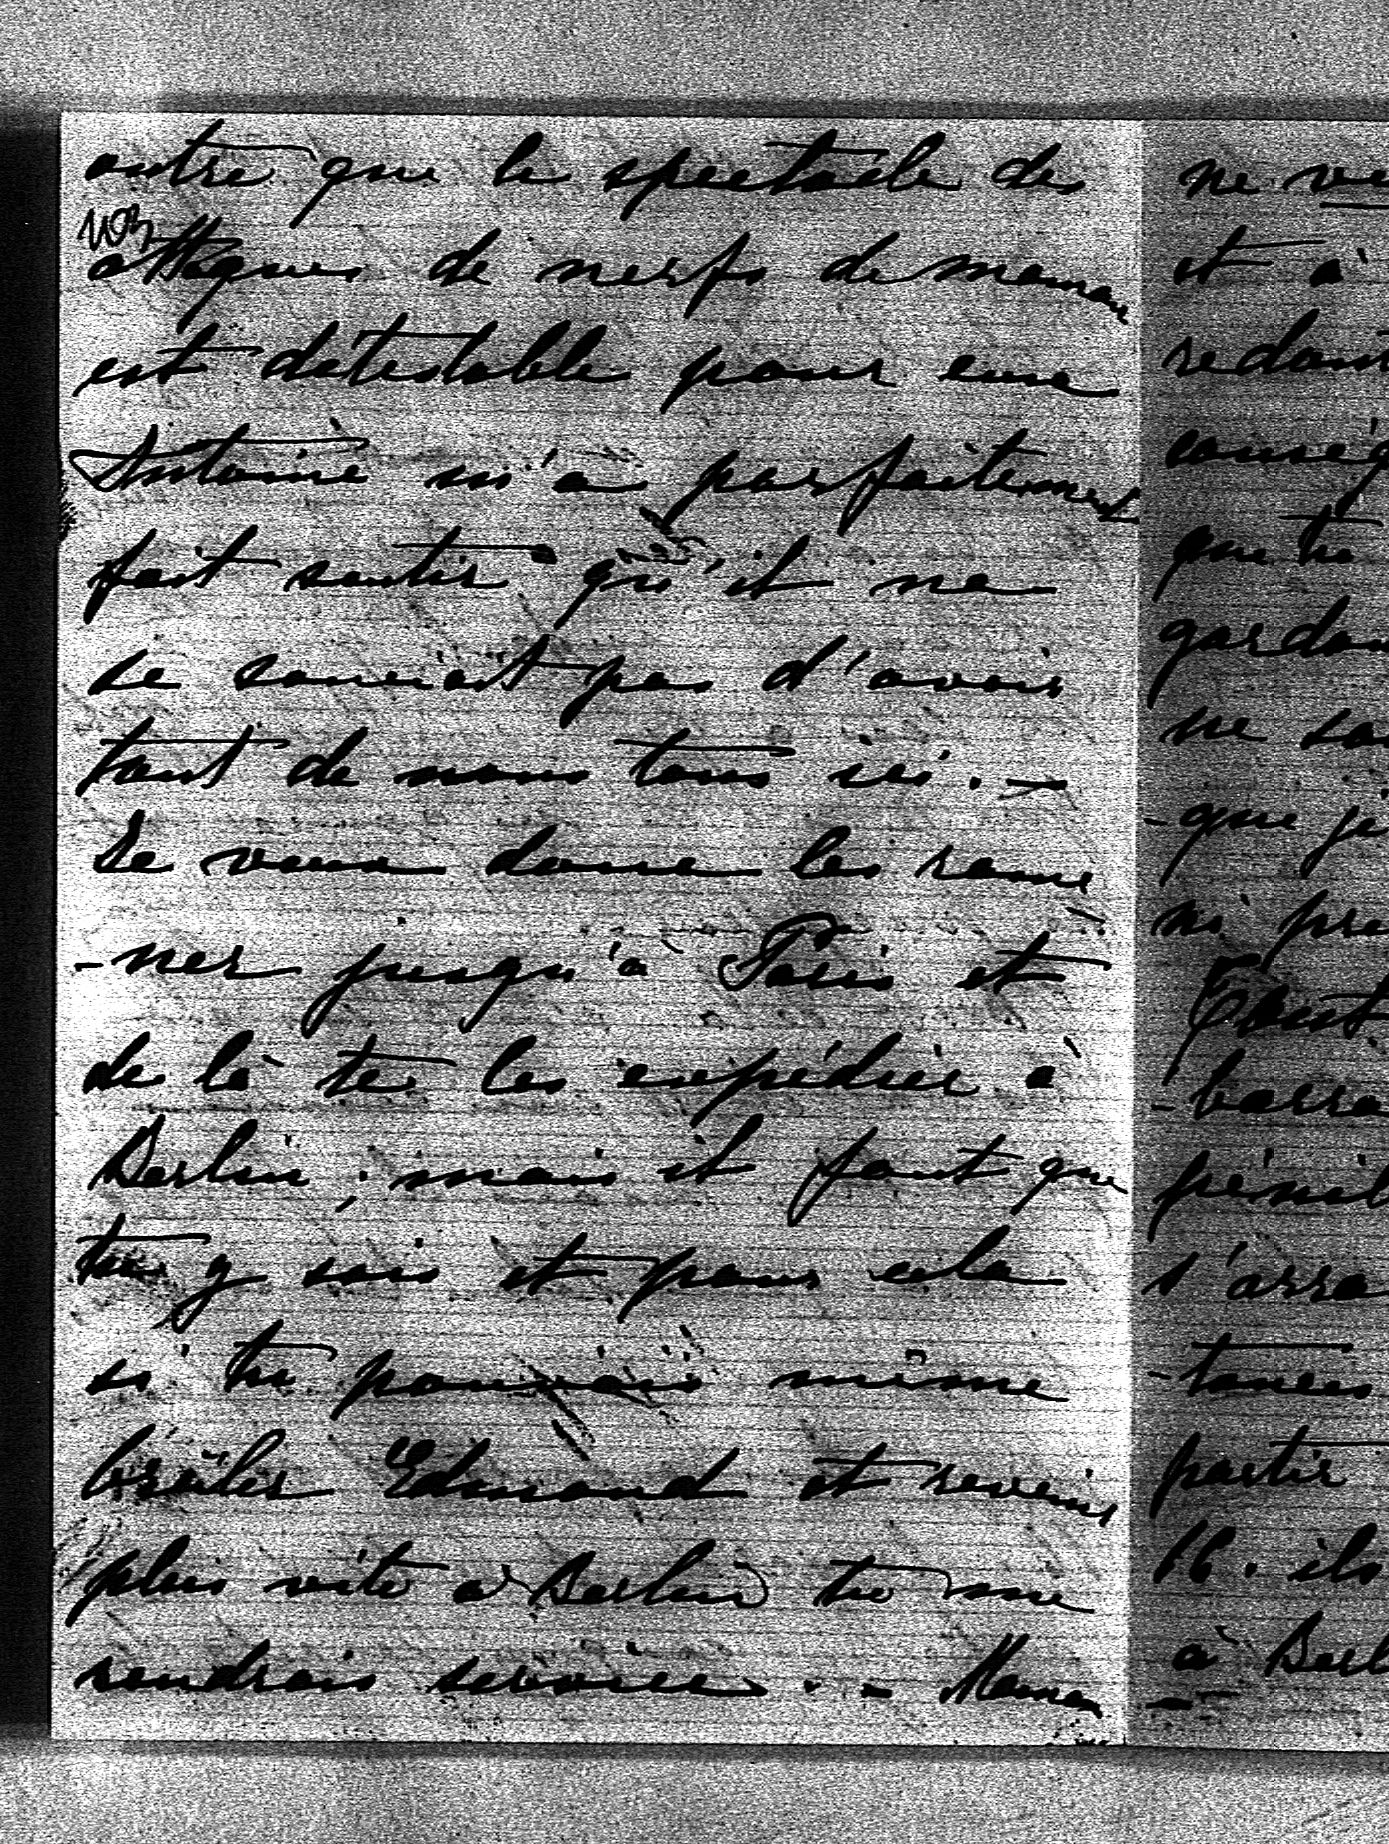 outre que le spectacle des
attaques de nerfs de maman
est détestable pour eux
Antoine m'a parfaitement
fait sentir qu'il ne
se souciait pas d'avoir
tant de nous tous ici. —
Je veux donc les rame
-ner jusqu'à Paris et
de là te les expédier à
Berlin; mais il faut que
tu y sois et pour cela
si tu pouvais même
brûler Edmond et revenir
plus vite à Berlin tu me
rendrais service. - Maman
ne
et à
que tu
ne
-que je
ni
partir
16. ils
à